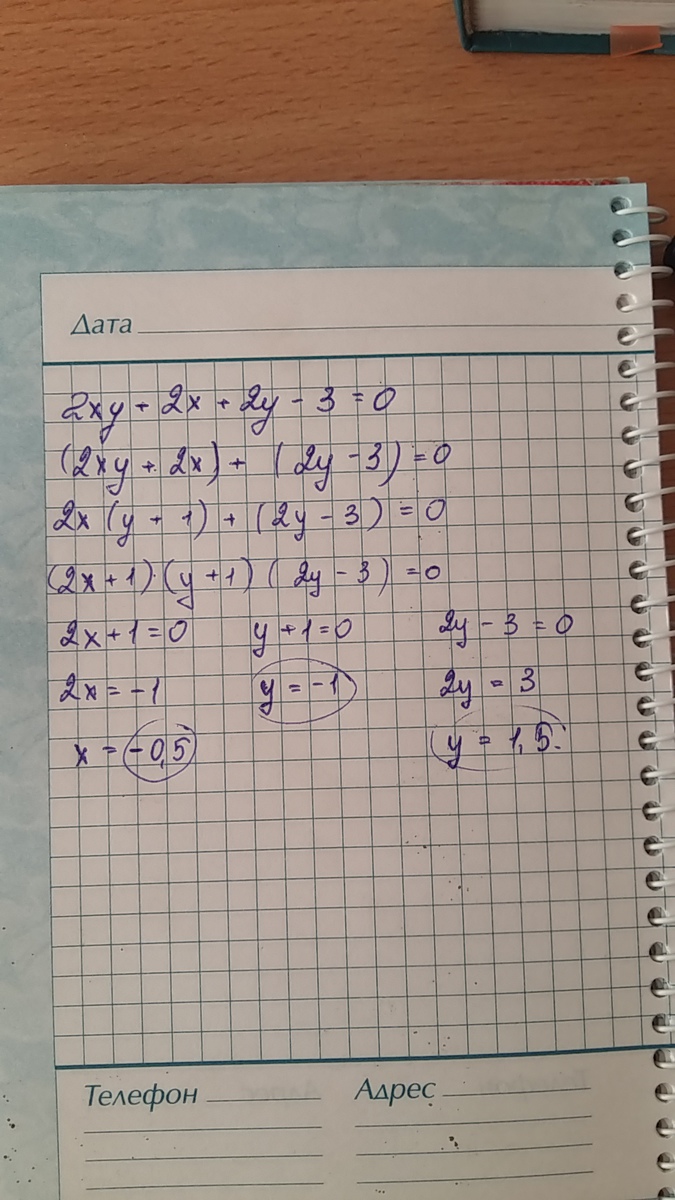 Дата
2xy + 2x + 2y - 3 = 0
(2xy + 2x) + (2y - 3) = 0
2x (y + 1) + (2y - 3) = 0
(2x + 1) · (y + 1) (2y - 3) = 0
2x + 1 = 0 y + 1 = 0 2y - 3 = 0
2x = -1 y = -1 2y = 3
x = -0,5 y = 1,5.
Телефон Адрес